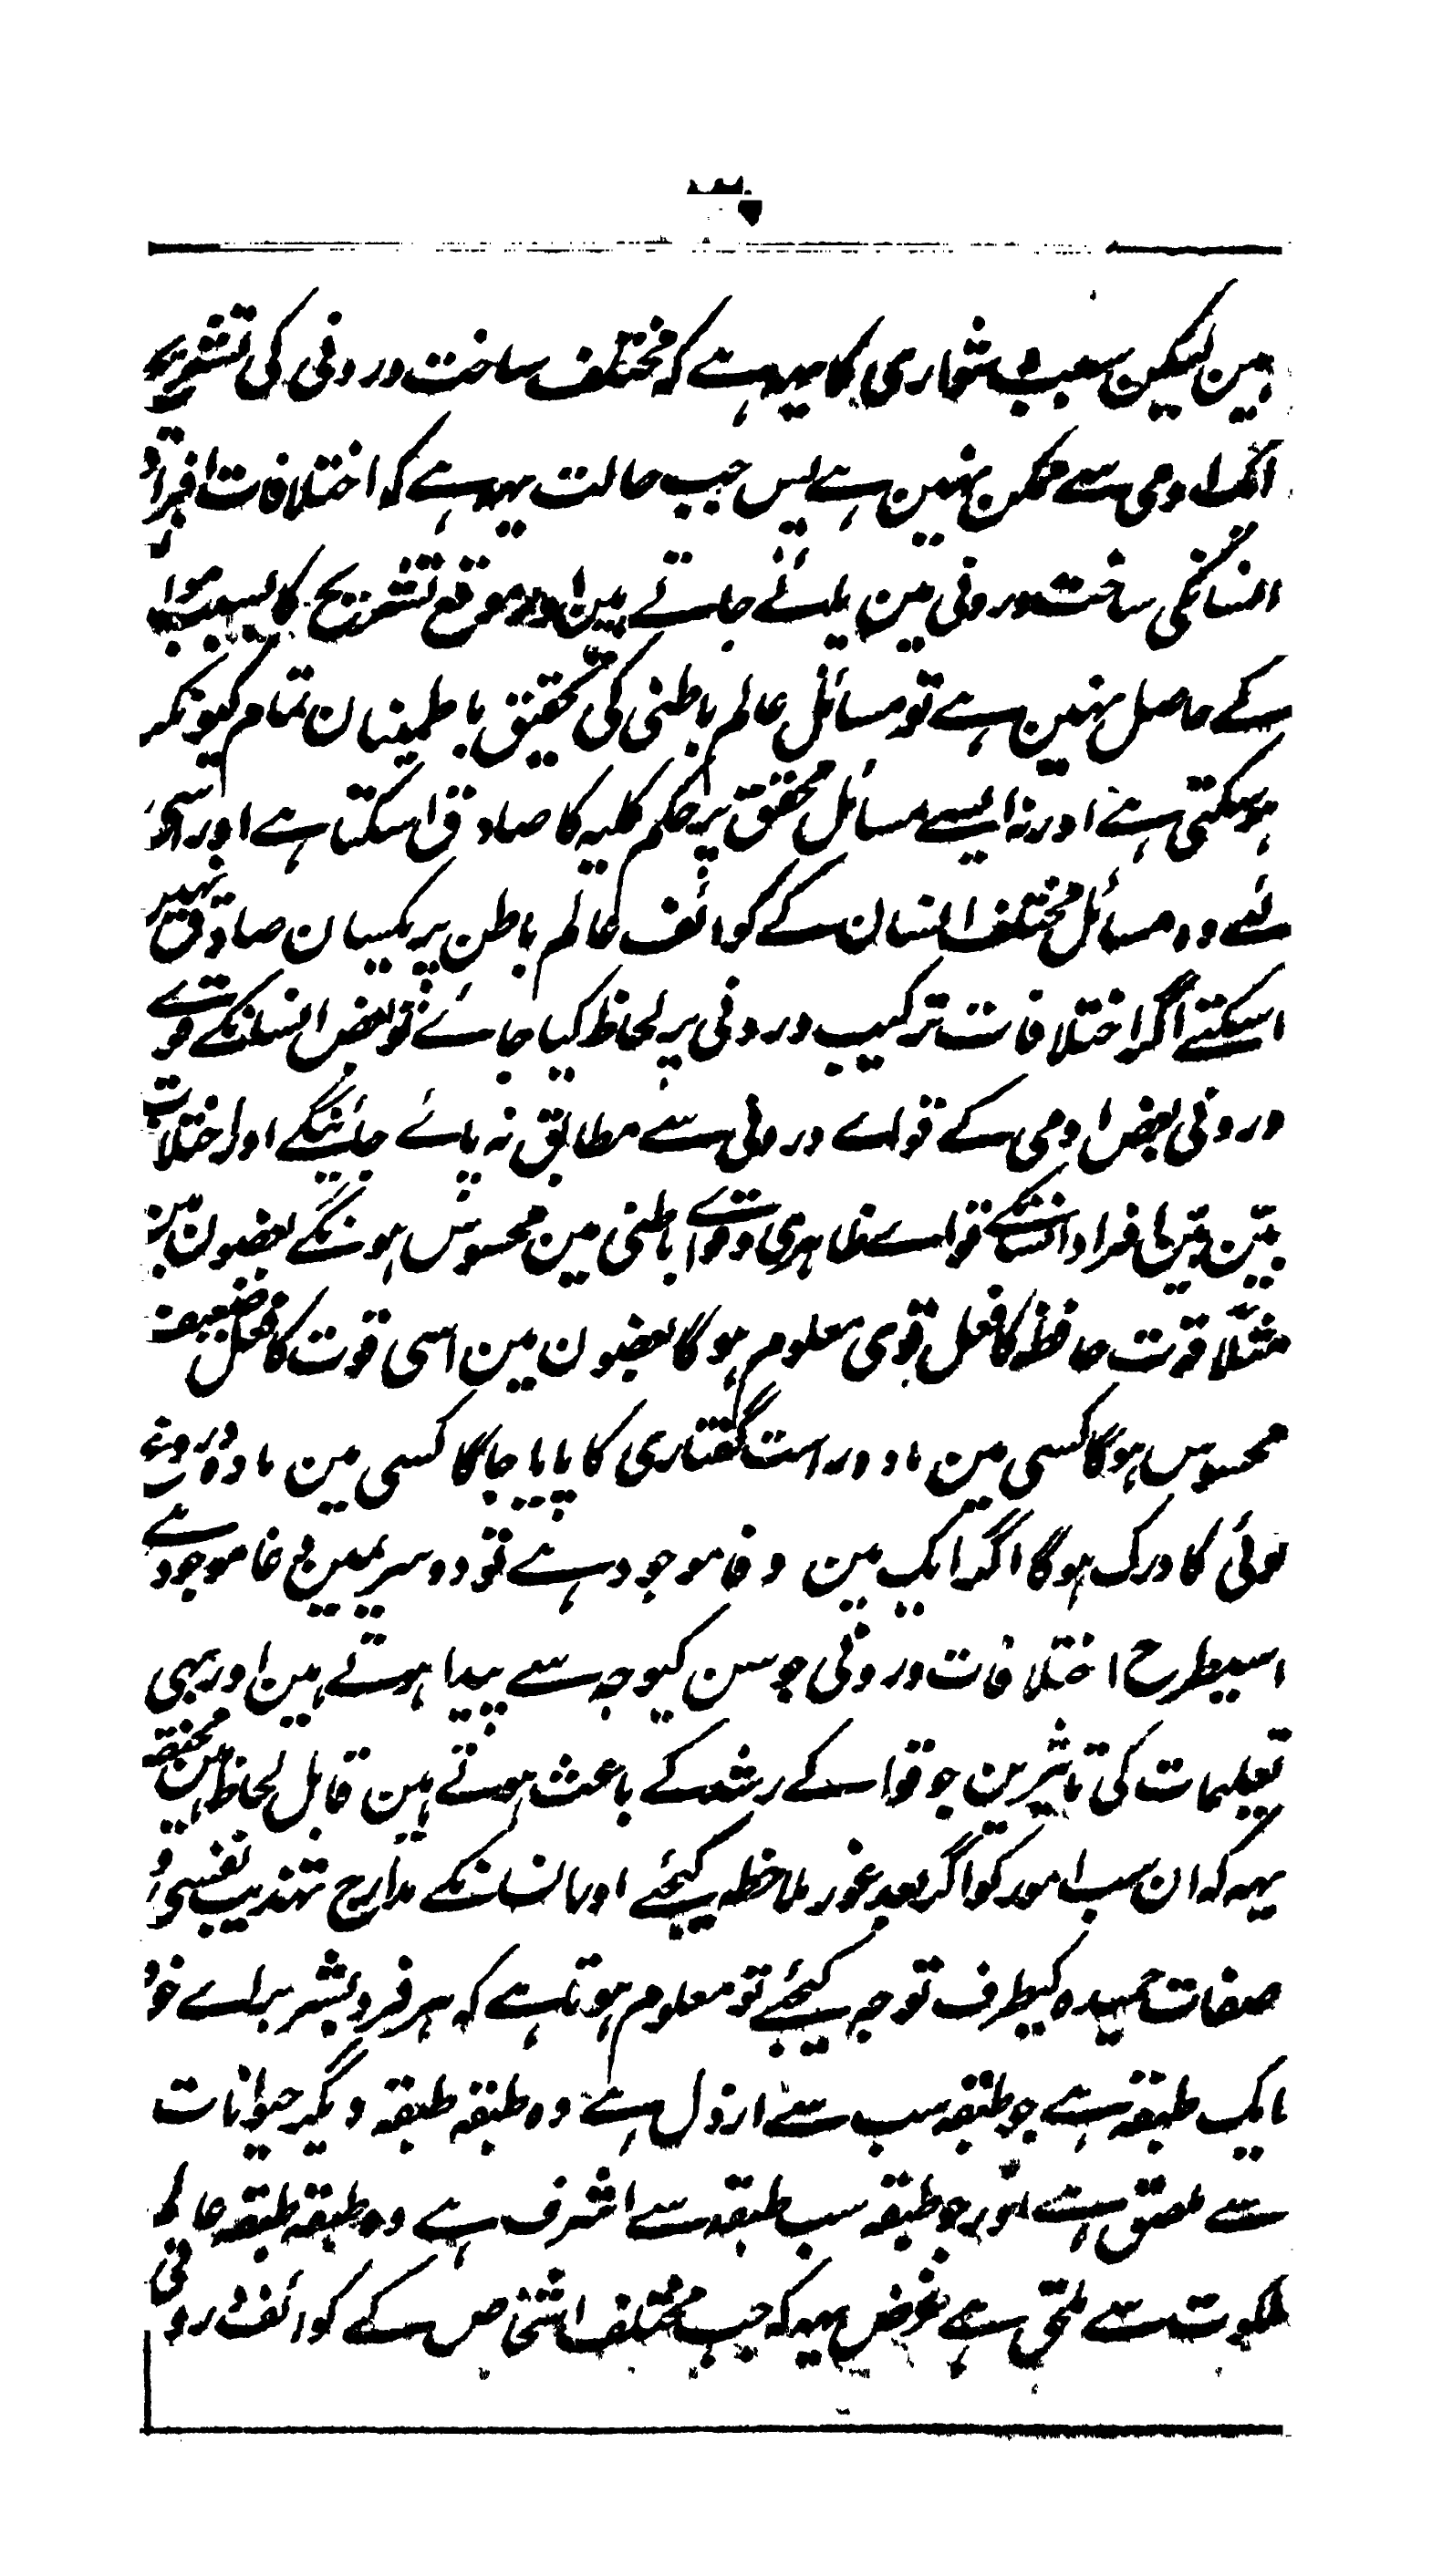 ہین لیکن سبب دشواری کا یہہ ہے کہ مختلف ساخت درونی کی تشریح
ایک ادمی سے ممکن نہین ہے پس جب حالت یہہ ہے کہ اختلافات افراد
انسانکی ساخت درونی مین پائے جاتے ہین اور موقع تشریح کا بسبب موانع
کے حاصل نہین ہے تو مسائل عالم باطنی کی تحقیق باطمینان تمام کیونکر
ہوسکتی ہے اور نہ ایسے مسائل محقق پر حکم کلیہ کا صادق اسکتا ہے اور اسی
لئے وہ مسائل مختلف انسان کے کوائف عالم باطن پر یکسان صادق نہین
اسکتے اگر اختلافات ترکیب درونی پر لحاظ کیا جائے تو بعض انسانکے قواے
درونی بعض ادمی کے قواے درونی سے مطابق نہ پائے جائینگے اور اختلافات
بیّن بیّن افراد انسانکے قواے ظاہری و قواے باطنی مین محسوس ہونگے بعضون مین
مثلاً قوت حافظہ کا فعل قوی معلوم ہوگا بعضون مین اسی قوت کا فعل ضعیف
محسوس ہوگا کسی مین مادہ راست گفتاری کا پایا جاگا کسی مین مادہ دروغ
گوئی کا درک ہوگا اگر ایک مین وفا موجود ہے تو دوسریمین دغا موجود ہے
اسیطرح اختلافات درونی جو سن کیوجہ سے پیدا ہوتے ہین اور بہی
تعلیمات کی تاثیرین جو قواے کے رشد کے باعث ہوتے ہین قابل لحاظ ہین مختصر
یہہ کہ ان سب امور کو اگر بعد غور ملاحظہ کیجئے اور انسانکے مدارج تہذیب نفسی و
صفات حمیدہ کیطرف توجہ کیجئے تو معلوم ہوتا ہے کہ ہر فرد بشر براے خود
ایک طبقہ ہے جو طبقہ سب سے ارذل ہے وہ طبقہ طبقہ دیگر حیوانات
سے ملصق ہے اور جو طبقہ سب طبقہ سے اشرف ہے وہ طبقہ طبقہ عالم
ملکوت سے ملحق ہے غرض یہہ کہ جب مختلف اشخاص کے کوائف درونی